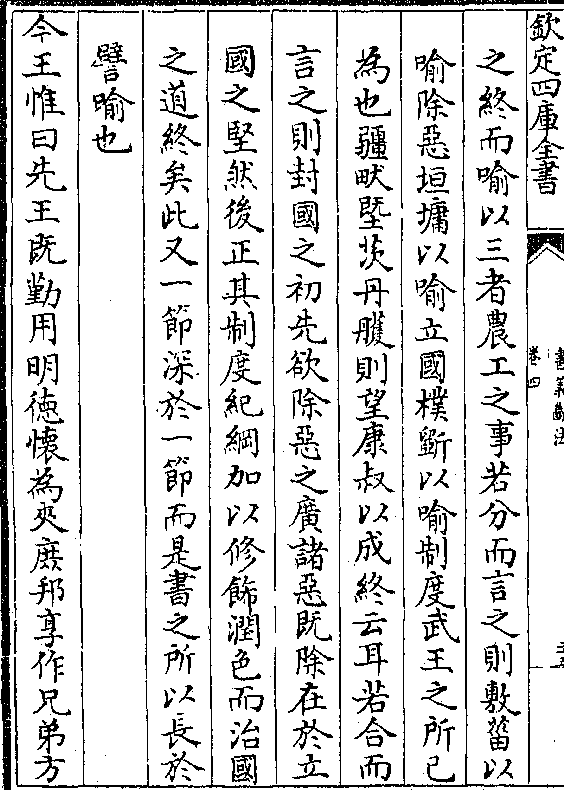 欽定四庫全書
書義斷法
卷四
之終而喻以三者農工之事若分而言之則敷菑以
喻除惡垣墉以喻立國樸斲以喻制度武王之所已
為也疆畎墍茨丹雘則望康叔以成終云耳若合而
言之則封國之初先欲除惡之廣諸惡既除在於立
國之堅然後正其制度紀綱加以修飾潤色而治國
之道終矣此又一節深於一節而是書之所以長於
譬喻也
今王惟曰先王既勤用明德懷為夾庶邦享作兄弟方